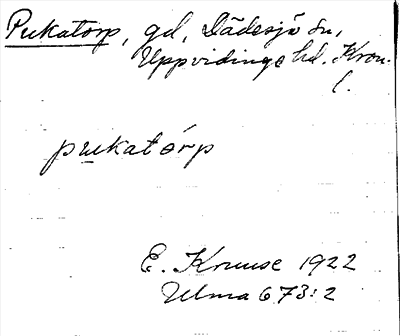 Pukatorp, gd, Dädesjö sn,
Uppvidinge hd. Kron.
l.
pukatórp
E. Kruuse 1922
Ulma 673:2